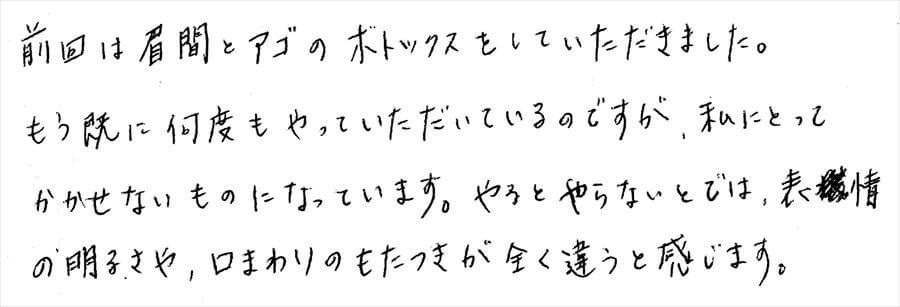 前回は眉間とアゴのボトックスをしていただきました。
もう既に何度もやっていただいているのですが、私にとって
かかせないものになっています。やるとやらないとでは、表情
の明るさや、口まわりのもたつきが全く違うと感じます。